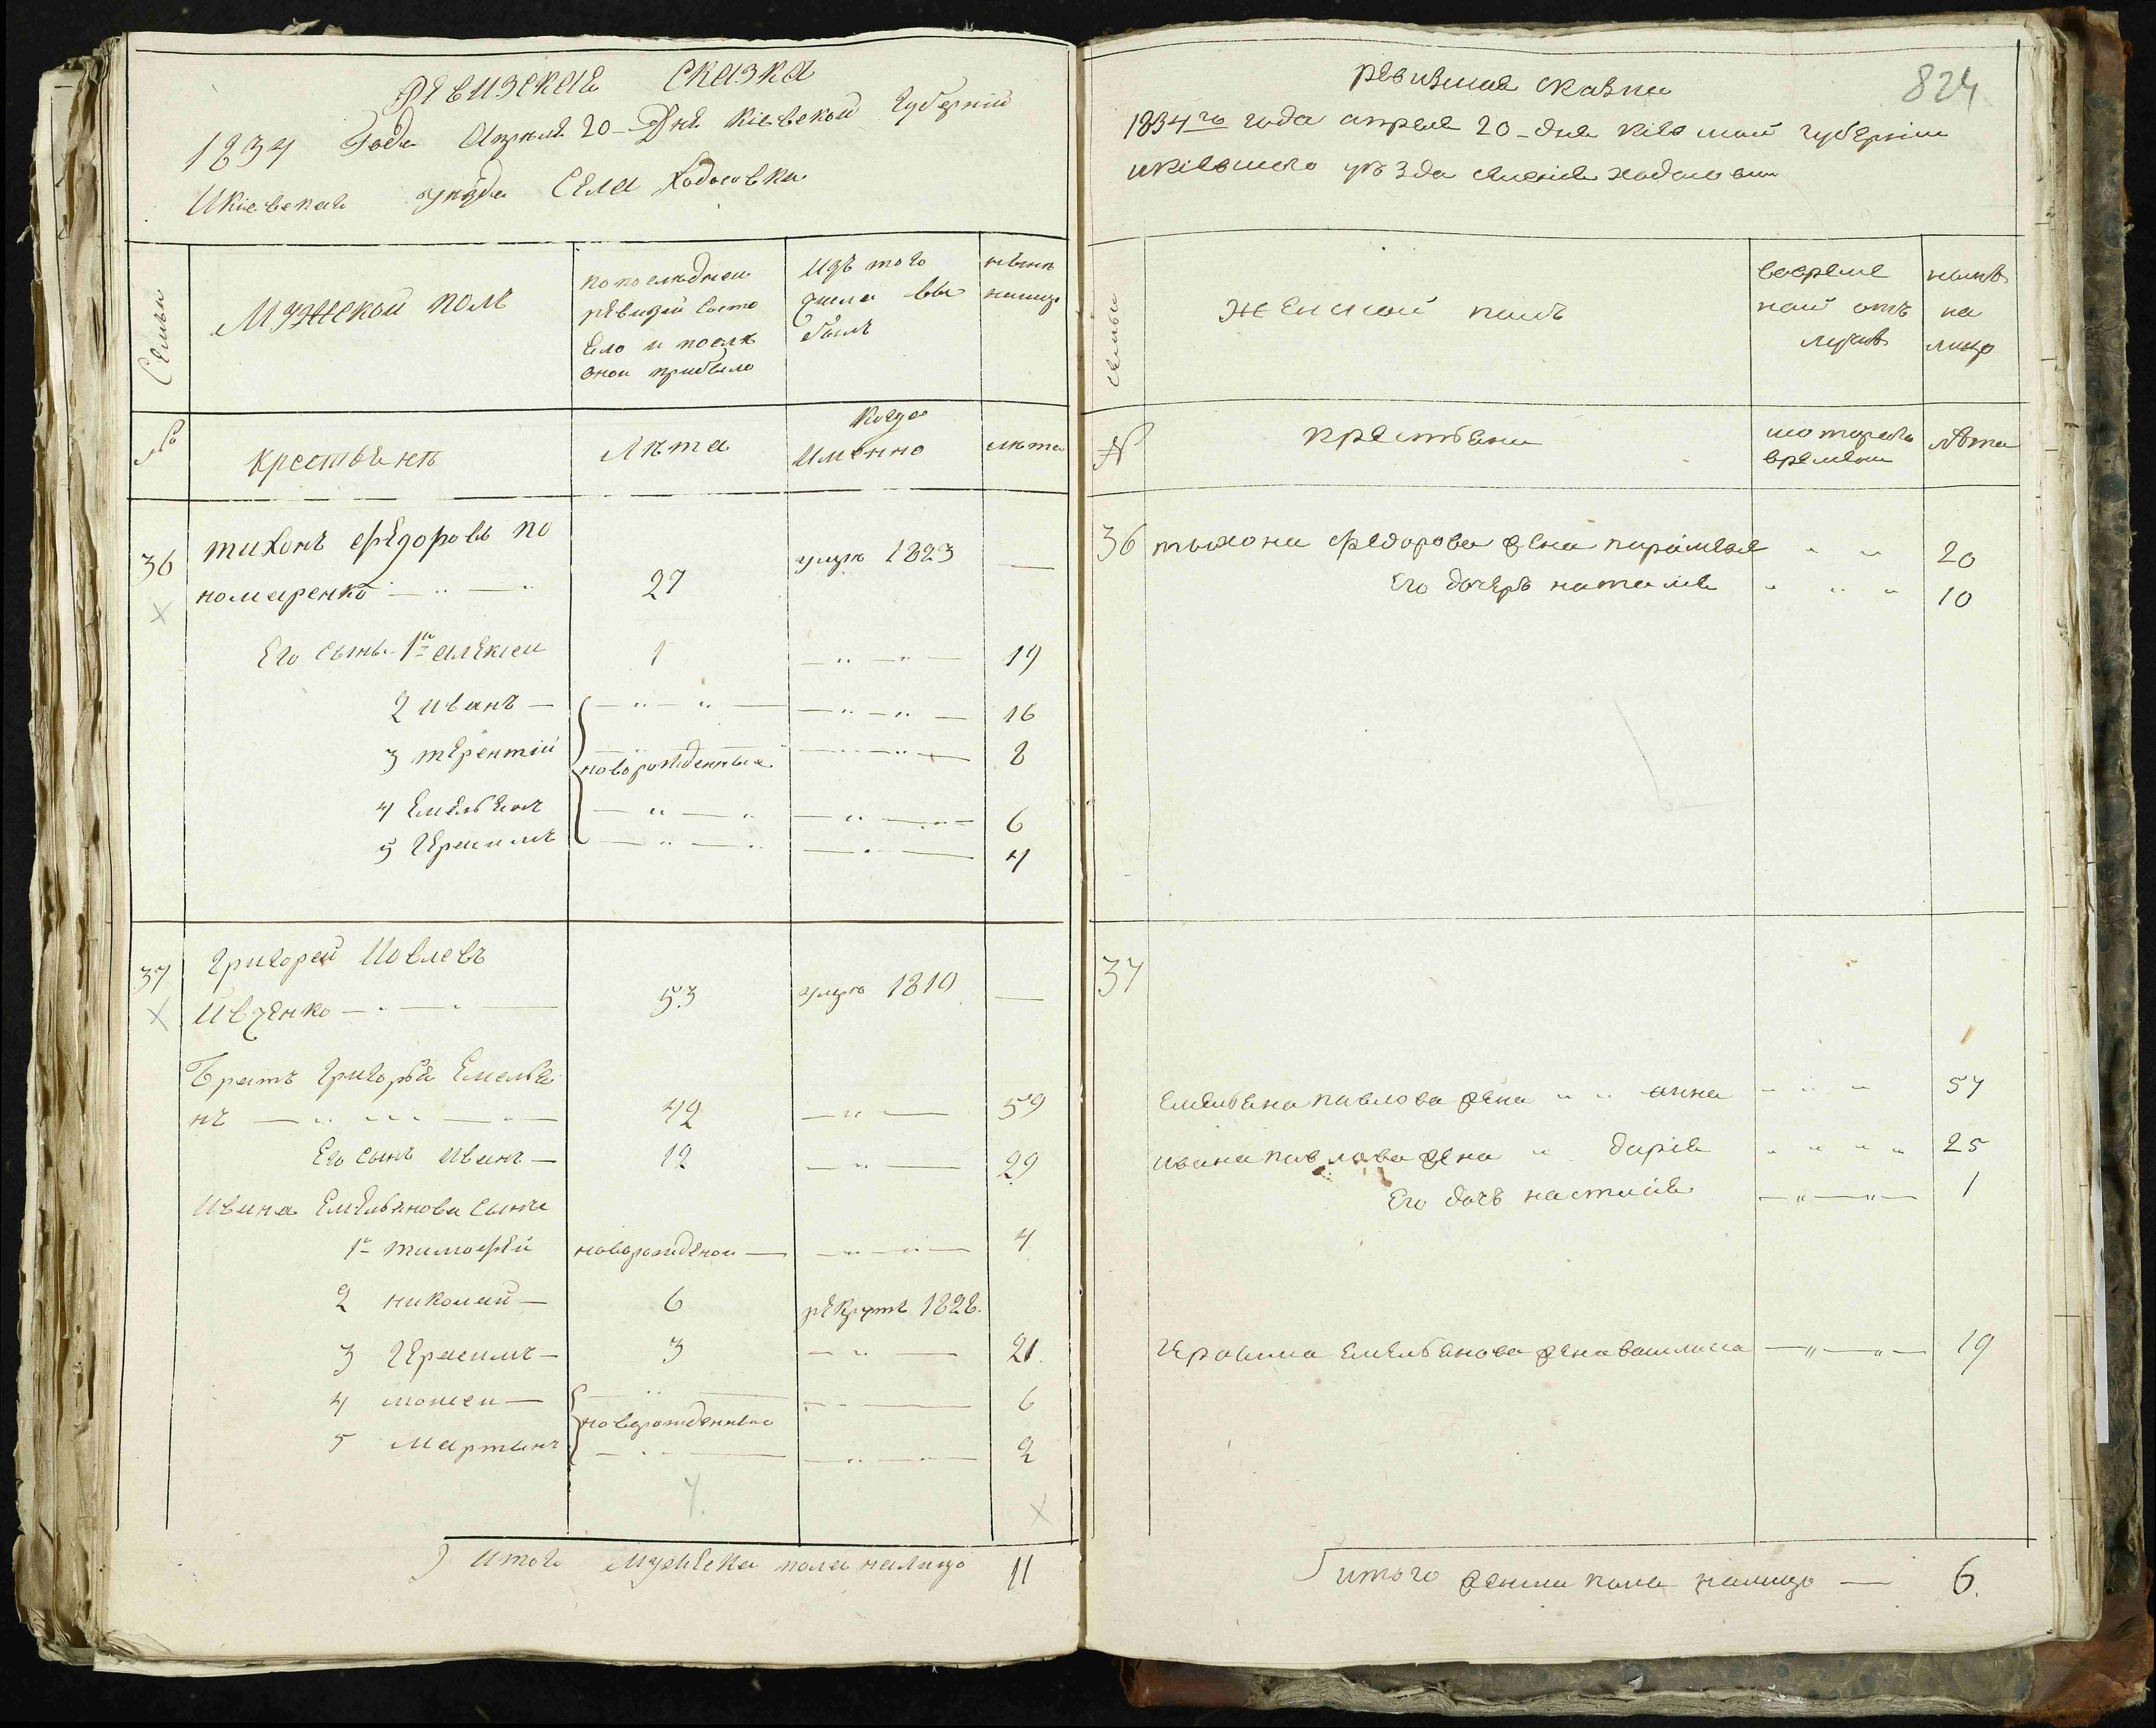 Ревизская Сказка
1834 Года Апреля 20 - Дня Кіевской Губерніи
И Кіевская уезда Села Ходосовка
Семьи
Мужеской полъ
по последней
ревизіи состо
ело и после
оной прибыло
Изъ того
числа вы
было
ныне
налицо
№
крестьянъ
Лѣта
Когда
Именно
лѣта
36
тихонъ Федоровъ по
номаренко
27
умре 1823
Его сынъ 1й алексеи
1
19
2 иванъ
16
3 терентій
новорожденные
8
4 Емельянъ
6
5 Герасимъ
4
37
Григорей Иовлевъ
Ивченко
53
умре 1819
Братъ Григорія Емелья
нъ
42
59
Его сынъ Иванъ
12
29
Ивана Емельянова сыны
1й тимофей
новорожденои
4
2 николай
6
рекрутъ 1828.
3 Герасимъ
3
21.
4 моисеи
новорожденные
6
5 Мартынъ
2
Итого Мужеска пола налицо 11
824
ревизская сказка
1834го года апреля 20 - дня Кіевской губерніи
и кіевского уѣзда селенія ходосовки
семьи
Женской полъ
вовреме
ной отъ
лучке
ныне
на
лицо
№
крестьяни
которого
времени
лѣта
36 тихона Федорова жена параския 20
Его дочерь наталия 10
37
Емельяна павлова жена анна 57
ивана павлова жена дарія 25
Его дочъ настасія 1
Герасима Емельянова жена василиса 19
итого женска пола налицо 6.